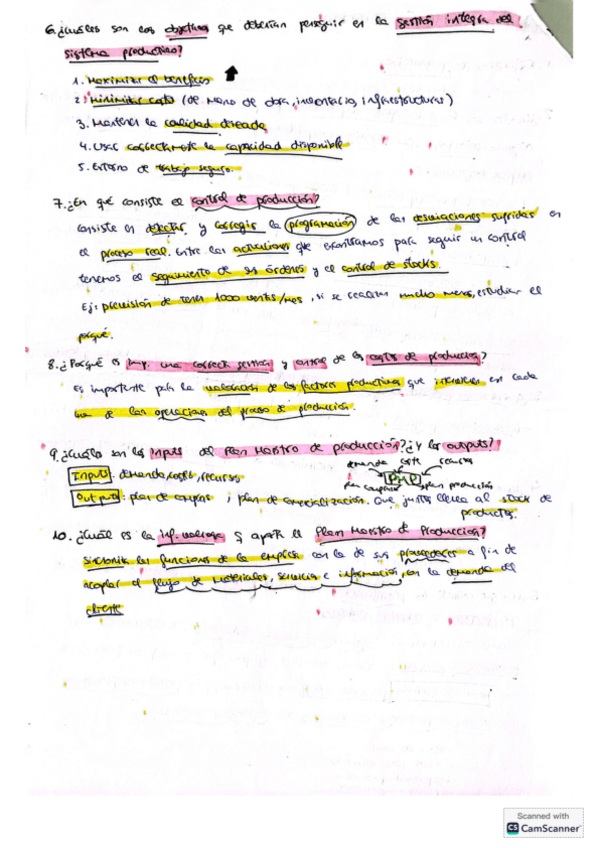 6. ¿Cuáles son los objetivos que deberían perseguir en la gestión íntegra del
sistema productivo?
1. Maximizar el beneficio
2. Minimizar costo (de mano de obra, inventario, infraestructuras)
3. Mantener la calidad deseada
4. Usar correctamente la capacidad disponible
5. Entorno de trabajo seguro.
7. ¿En qué consiste el control de producción?
consiste en detectar y corregir la programación de las desviaciones sufridas en
el proceso real. Entre las actuaciones que encontramos para seguir un control
tenemos el seguimiento de las órdenes y el control de stocks.
Ej: previsión de tener 1000 ventas/mes, si se realizan mucho menos, estudiar el
porqué.
8. ¿Porqué es imp. una correcta gestión y control de los costes de producción?
Es importante para la valoración de los factores productivos que intervienen en cada
una de las operaciones del proceso de producción.
9. ¿Cuáles son los Inputs del Plan Maestro de producción? ¿Y los outputs?
demanda coste recursos
Inputs: demanda, coste, recursos
PMP
plan compras plan producción
Outputs: plan de compras ; plan de comercialización. Que juntos lleva al stock de
productos.
10. ¿Cuál es la inf. valiosa q aporta el Plan Maestro de Producción?
Sincroniza las funciones de la empresa con la de sus proveedores a fin de
acoplar el flujo de materiales, servicios e información, con la demanda del
cliente
Scanned with
CS CamScanner